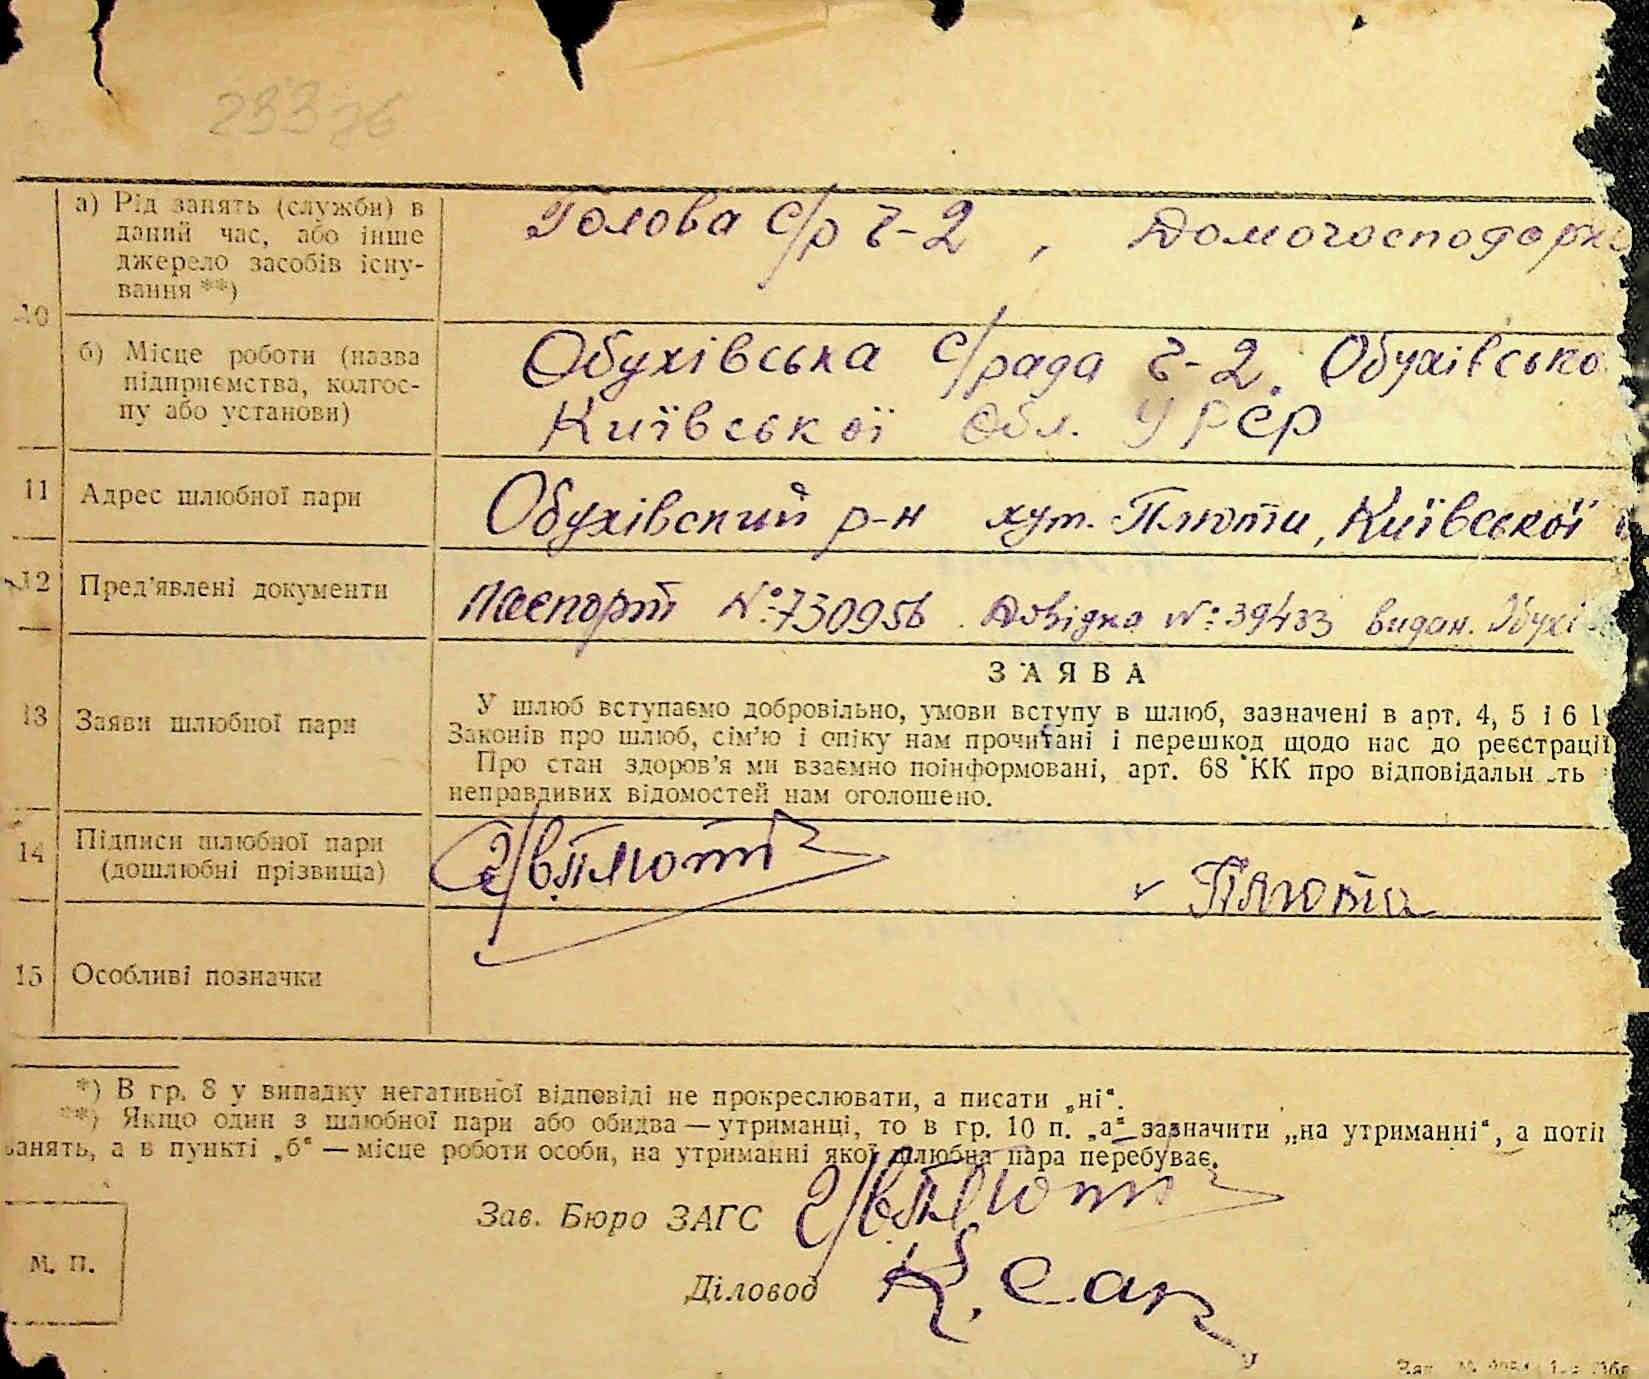 23376
а) Рід занять (служби) в
даний час, або інше
джерело засобів існу-
вання **)
Голова с/р ч-2 , Домогосподарк
10
б) Місце роботи (назва
підприємства, колгос-
пу або установи)
Обухівська с/рада ч-2. Обухівсько
Київської Обл. УРСР
11 Адрес шлюбної пари
Обухівский р-н хут. Плюти, Київської
12 Пред'явлені документи
Паспорт №: 730956. Довідка №: 39433 видан. Обухі
ЗАЯВА
13 Заяви шлюбної пари
У шлюб вступаємо добровільно, умови вступу в шлюб, зазначені в арт. 4, 5 і 6
Законів про шлюб, сім'ю і опіку нам прочитані і перешкод щодо нас до реєстрації
Про стан здоров'я ми взаємно поінформовані, арт. 68 КК про відповідальн ть
неправдивих відомостей нам оголошено.
14 Підписи шлюбної пари
(дошлюбні прізвища)
Плюта
15 Особливі позначки
*) В гр. 8 у випадку негативної відповіді не прокреслювати, а писати „ні“.
**) Якщо один з шлюбної пари або обидва — утриманці, то в гр. 10 п. „а“ зазначити „на утриманні“, а потім
занять, а в пункті „б“ — місце роботи особи, на утриманні якої шлюбна пара перебуває.
Зав. Бюро ЗАГС
М. П.
Діловод К. Сак